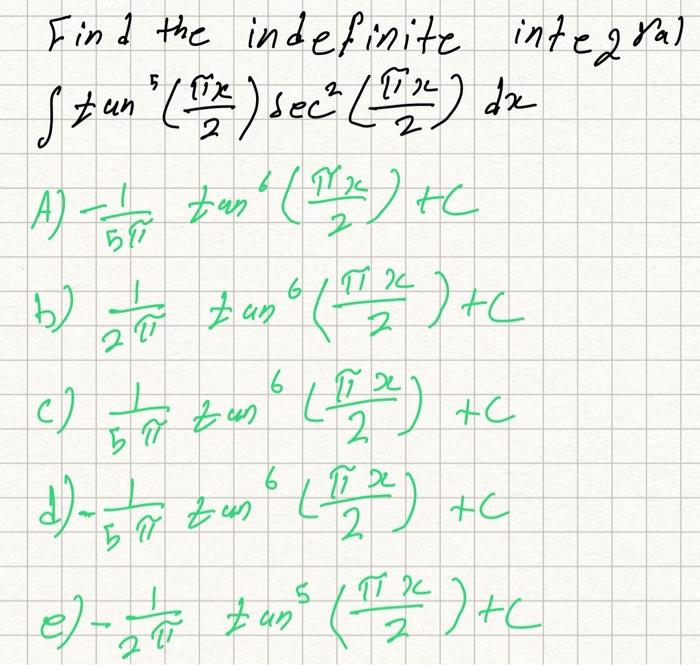 Find the indefinite integral
∫ tan⁵(πx/2) sec²(πx/2) dx
A) -1/5π tan⁶(πx/2) +C
b) 1/2π tan⁶(πx/2) +C
c) 1/5π tan⁶(πx/2) +C
d) -1/5π tan⁶(πx/2) +C
e) -1/2π tan⁵(πx/2) +C